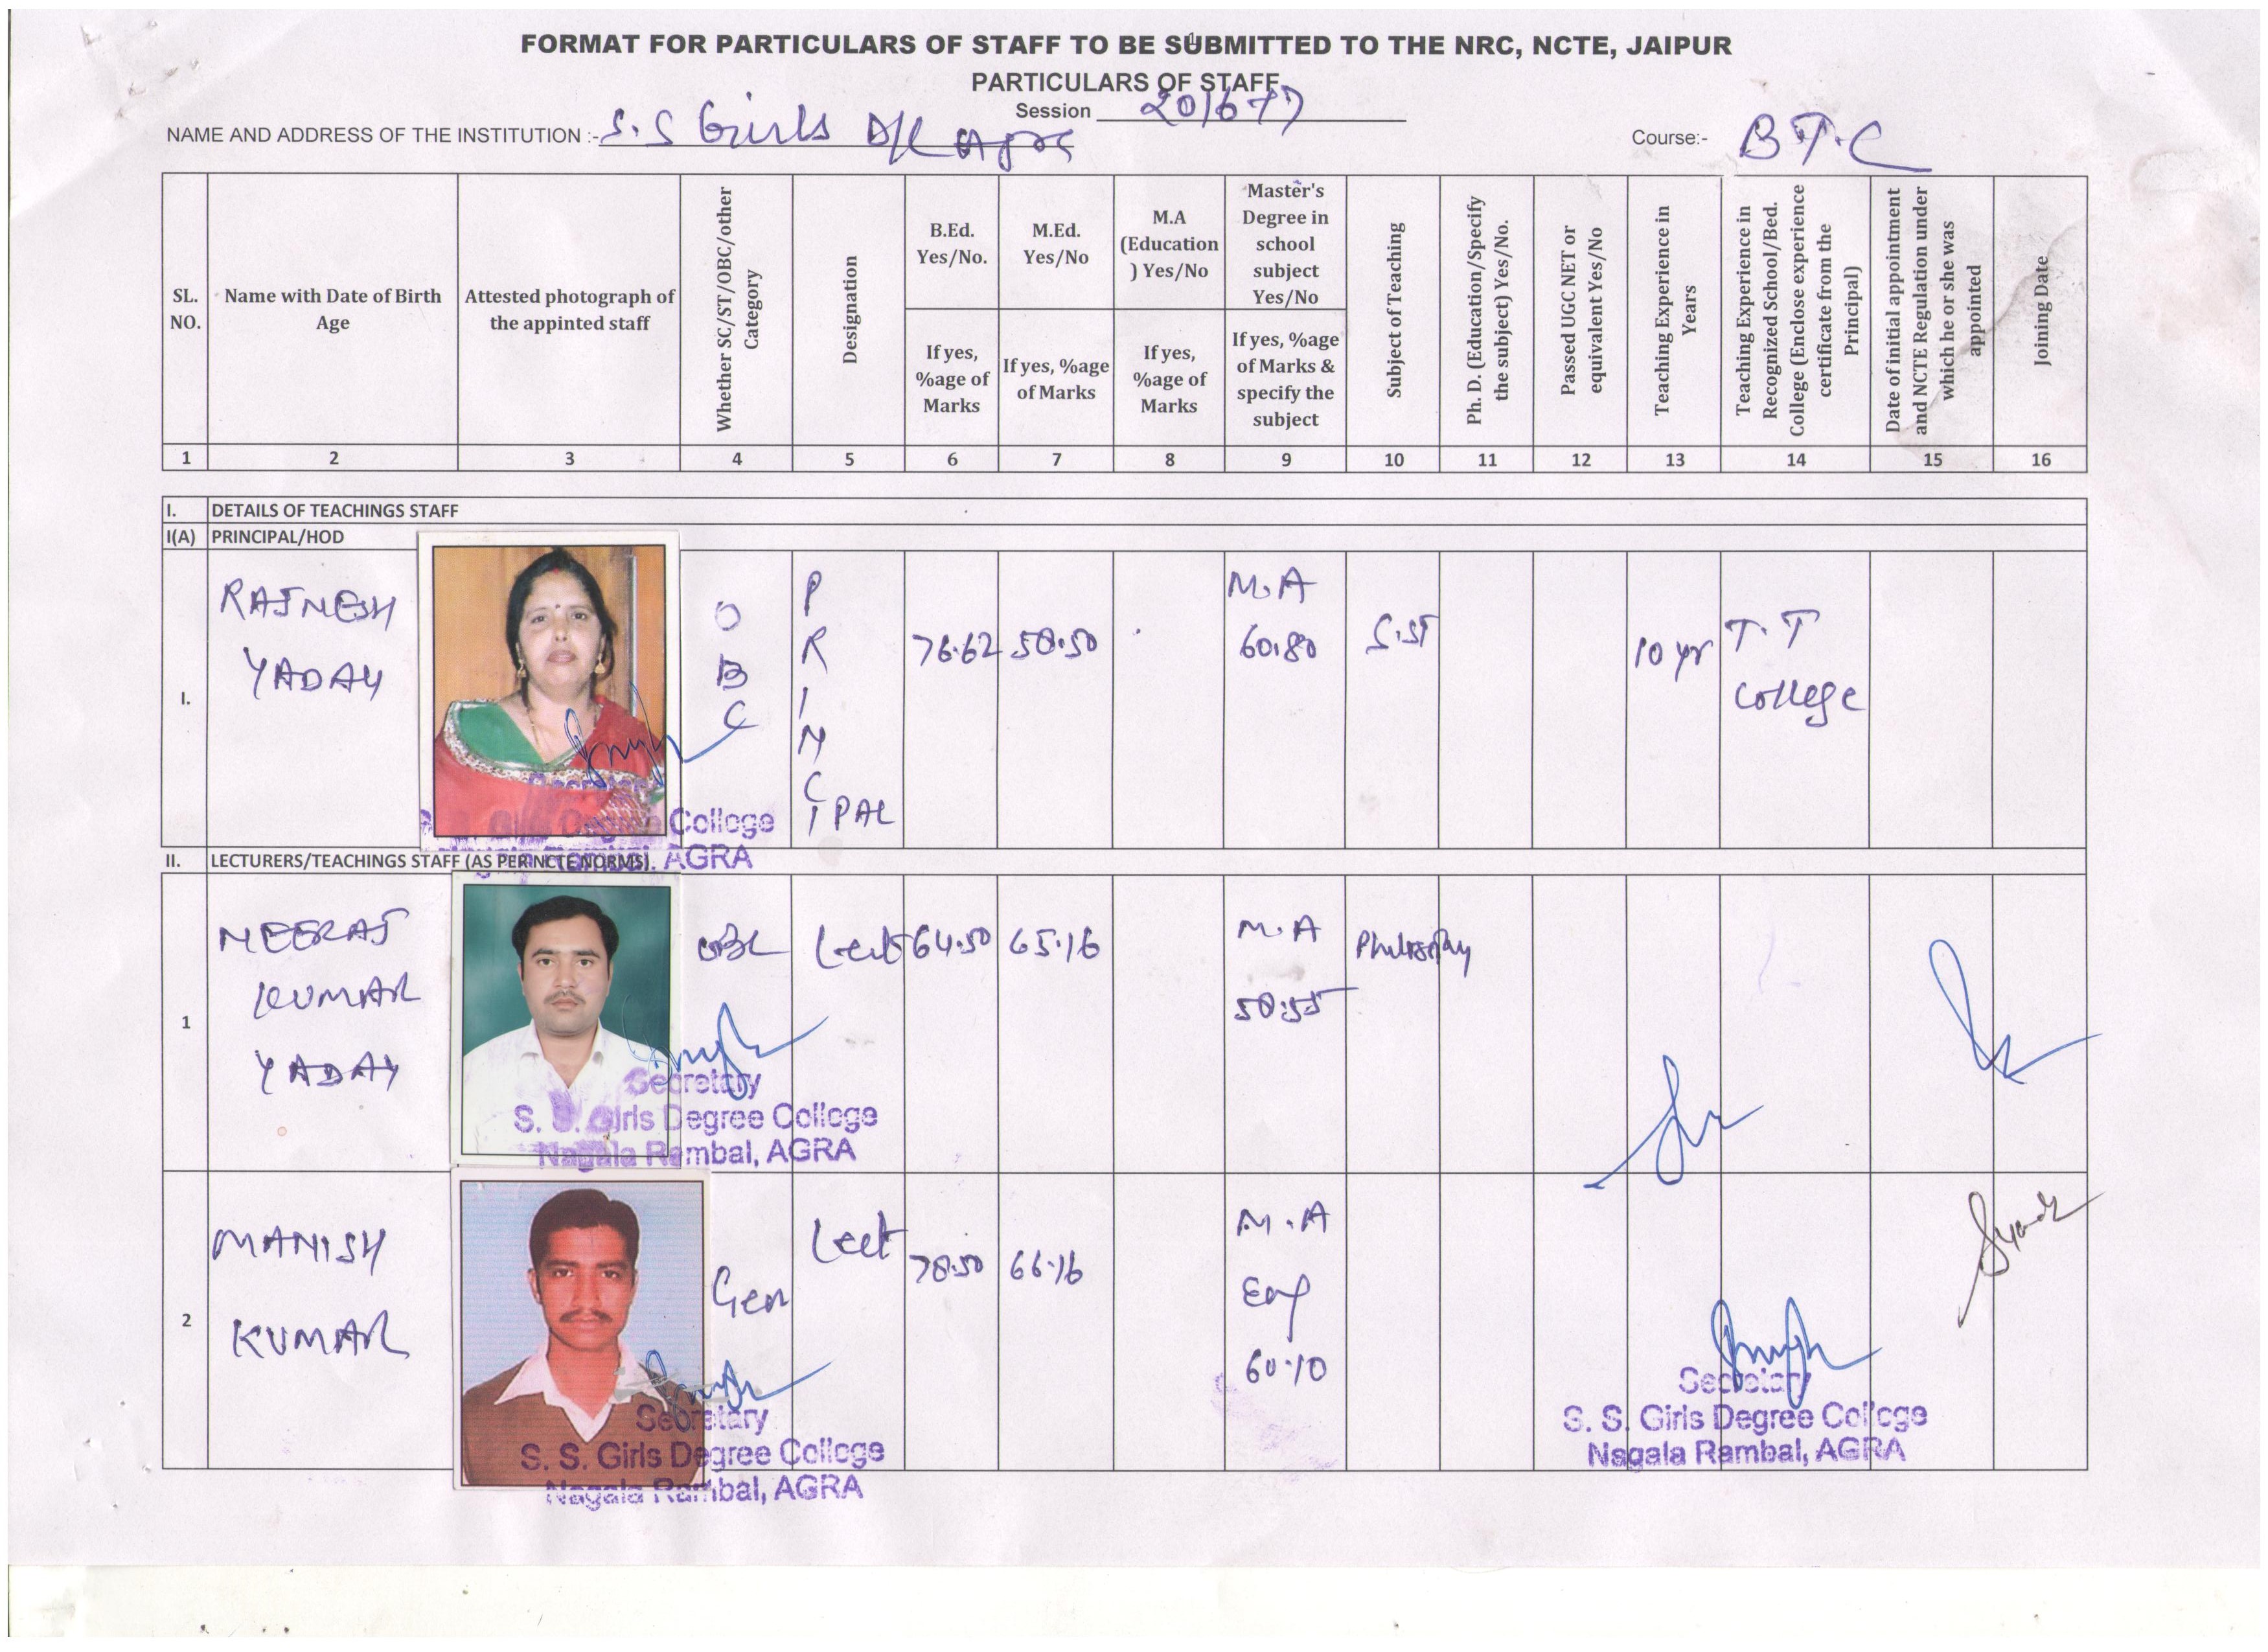 FORMAT FOR PARTICULARS OF STAFF TO BE SUBMITTED TO THE NRC, NCTE, JAIPUR
PARTICULARS OF STAFF
Session 2016-17
NAME AND ADDRESS OF THE INSTITUTION :- S.S Girls D/C Agra
Course:- B.T.C
SL. NO.
Name with Date of Birth Age
Attested photograph of the appinted staff
Whether SC/ST/OBC/other Category
Designation
B.Ed. Yes/No.
If yes, %age of Marks
M.Ed. Yes/No
If yes, %age of Marks
M.A (Education ) Yes/No
If yes, %age of Marks
Master's Degree in school subject Yes/No
If yes, %age of Marks & specify the subject
Subject of Teaching
Ph. D. (Education/Specify the subject) Yes/No.
Passed UGC NET or equivalent Yes/No
Teaching Experience in Years
Teaching Experience in Recognized School/Bed. College (Enclose experience certificate from the Principal)
Date of initial appointment and NCTE Regulation under which he or she was appointed
Joining Date
1 2 3 4 5 6 7 8 9 10 11 12 13 14 15 16
I. DETAILS OF TEACHINGS STAFF
I(A) PRINCIPAL/HOD
I.
RAJNESH
YADAV
OBC
PRINCIPAL
76.62
58.50
M.A
60.80
S.ST
10 yr
T.T
College
Secretary
S. S. Girls Degree College
Nagala Rambal, AGRA
II. LECTURERS/TEACHINGS STAFF (AS PER NCTE NORMS).
1
NEERAJ
KUMAR
YADAV
OBC
Lect
64.50
65.16
M.A
58.55
Philosophy
Secretary
S. S. Girls Degree College
Nagala Rambal, AGRA
2
MANISH
KUMAR
Gen
Lect
78.50
66.16
M.A
Eng
60.10
Secretary
S. S. Girls Degree College
Nagala Rambal, AGRA
Secretary
S. S. Girls Degree College
Nagala Rambal, AGRA